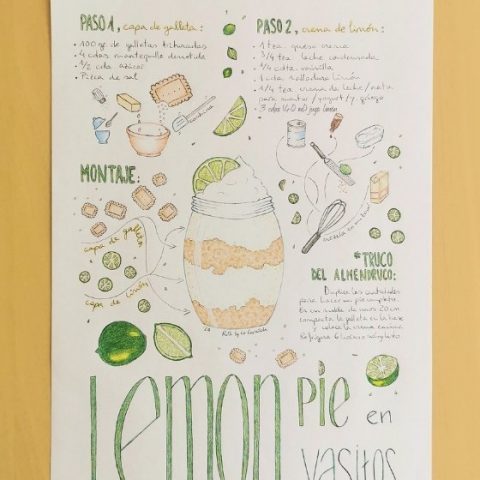 PASO 1, capa de galleta:
• 100 gr. de galletas trituradas
• 4 cdas mantequilla derretida
• 1/2 cda azúcar
• Pizca de sal
PASO 2, crema de limón:
• 1 tza. queso crema
• 3/4 tza leche condensada
• 1/4 cdta vainilla
• 1 cda ralladura limón
• 1/4 tza crema de leche/nata
para montar/yogurt/y griego
MONTAJE:
capa de galleta
capa de limón
*TRUCO
DEL ALMENDRUCO:
Duplica las cantidades
para hacer un pie completo.
En un molde de unos 20 cm
la galleta en la base
y coloca la crema encima.
LEMON PIE en
vasitos